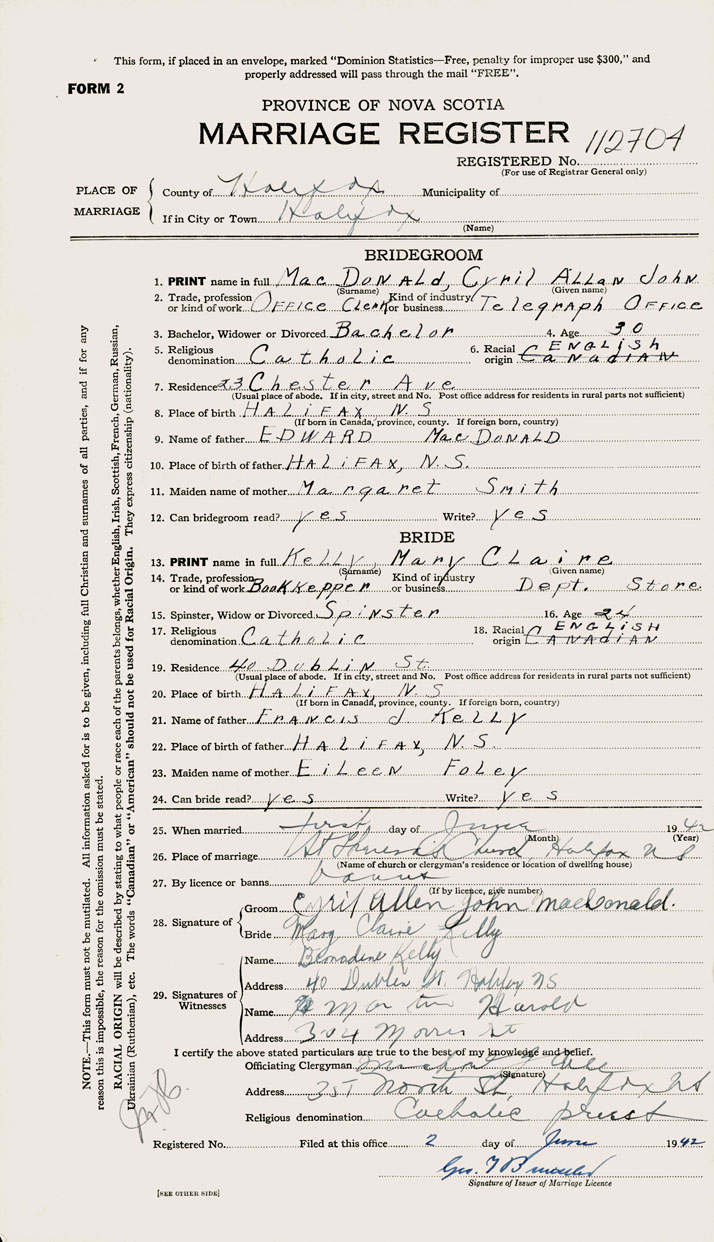 This form, if placed in an envelope, marked "Dominion Statistics—Free, penalty for improper use $300," and
properly addressed will pass through the mail "FREE".
FORM 2
PROVINCE OF NOVA SCOTIA
MARRIAGE REGISTER
REGISTERED No. 112704
(For use of Registrar General only)
PLACE OF MARRIAGE
County of Halifax Municipality of
If in City or Town Halifax
(Name)
BRIDEGROOM
1. PRINT name in full MacDONALD, Cyril ALLAN John
(Surname) (Given name)
2. Trade, profession or kind of work OFFICE Clerk Kind of industry or business Telegraph OFFICE
3. Bachelor, Widower or Divorced Bachelor 4. Age 30
5. Religious denomination Catholic 6. Racial origin ENGLISH CANADIAN
7. Residence 23 Chester Ave
(Usual place of abode. If in city, street and No. Post office address for residents in rural parts not sufficient)
8. Place of birth HALIFAX, N.S
(If born in Canada, province, county. If foreign born, country)
9. Name of father EDWARD MacDONALD
10. Place of birth of father HALIFAX, N.S.
11. Maiden name of mother Margaret Smith
12. Can bridegroom read? yes Write? yes
BRIDE
13. PRINT name in full Kelly, Mary CLaire
(Surname) (Given name)
14. Trade, profession or kind of work BooKKepper Kind of industry or business Dept. Store
15. Spinster, Widow or Divorced Spinster 16. Age 24
17. Religious denomination Catholic 18. Racial origin ENGLISH CANADIAN
19. Residence 40 DUBLIN St.
(Usual place of abode. If in city, street and No. Post office address for residents in rural parts not sufficient)
20. Place of birth HALIFAX, N.S
(If born in Canada, province, county. If foreign born, country)
21. Name of father FRANCIS J. KELLY
22. Place of birth of father HALIFAX, N.S.
23. Maiden name of mother EILEEN FOLEY
24. Can bride read? yes Write? yes
25. When married first day of June 1942
(Month) (Year)
26. Place of marriage St Theresa's Church Halifax NS
(Name of church or clergyman's residence or location of dwelling house)
27. By licence or banns banns
(If by licence, give number)
28. Signature of
Groom Cyril Allen John MacDonald.
Bride Mary Claire Kelly
29. Signatures of Witnesses
Name Bernadine Kelly
Address 40 Dublin St. Halifax NS
Name Martin Harold
Address 304 Morris St
I certify the above stated particulars are true to the best of my knowledge and belief.
Officiating Clergyman
(Signature)
Address 351 North St, Halifax NS
Religious denomination Catholic priest
Registered No. Filed at this office 2 day of June 1942
Geo.
Signature of Issuer of Marriage Licence
[SEE OTHER SIDE]
NOTE.—This form must not be mutilated. All information asked for is to be given, including full Christian and surnames of all parties, and if for any
reason this is impossible, the reason for the omission must be stated.
RACIAL ORIGIN will be described by stating to what people or race each of the parents belongs, whether English, Irish, Scottish, French, German, Russian,
Ukrainian (Ruthenian), etc. The words "Canadian" or "American" should not be used for Racial Origin. They express citizenship (nationality).